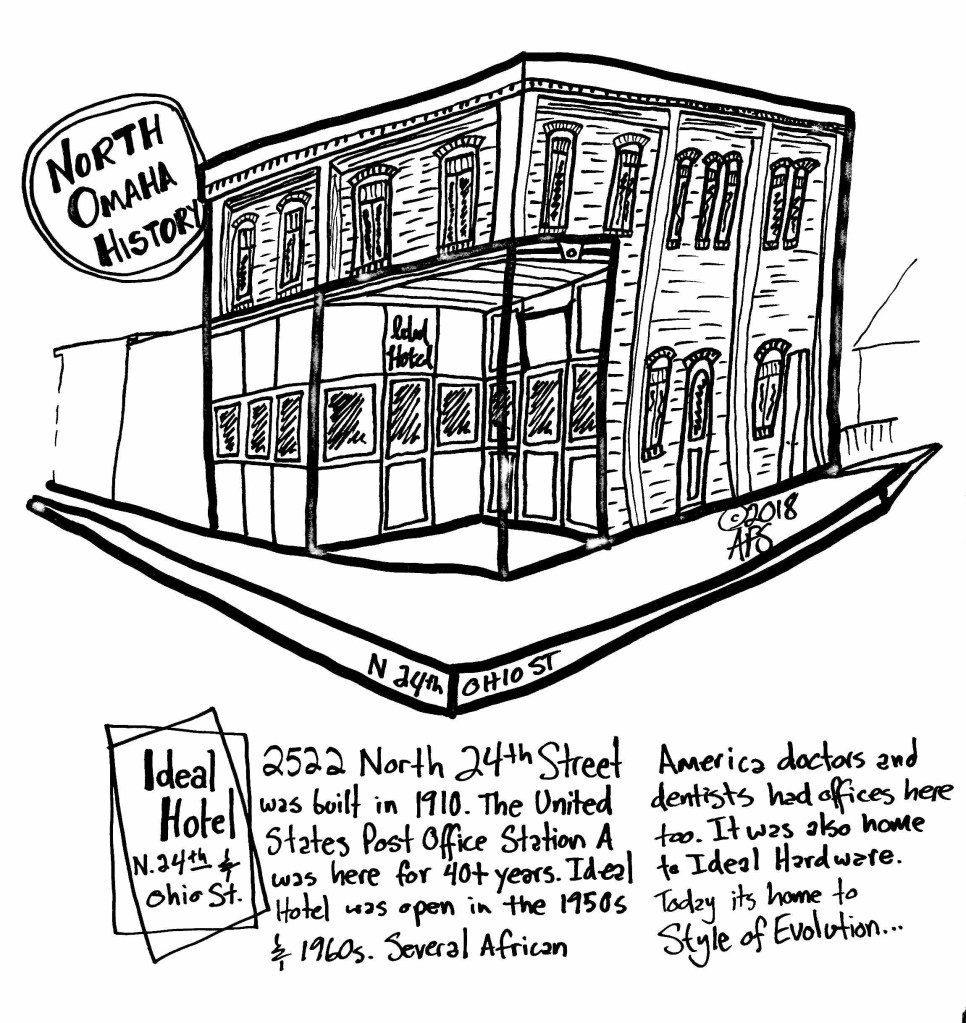 NORTH
OMAHA
HISTORY
Ideal
Hotel
©2018
APS
N 24th
OHIO ST
Ideal
Hotel
N. 24th &
Ohio St.
2522 North 24th Street
was built in 1910. The United
States Post Office Station A
was here for 40+ years. Ideal
Hotel was open in the 1950s
& 1960s. Several African
America doctors and
dentists had offices here
too. It was also home
to Ideal Hardware.
Today its home to
Style of Evolution...